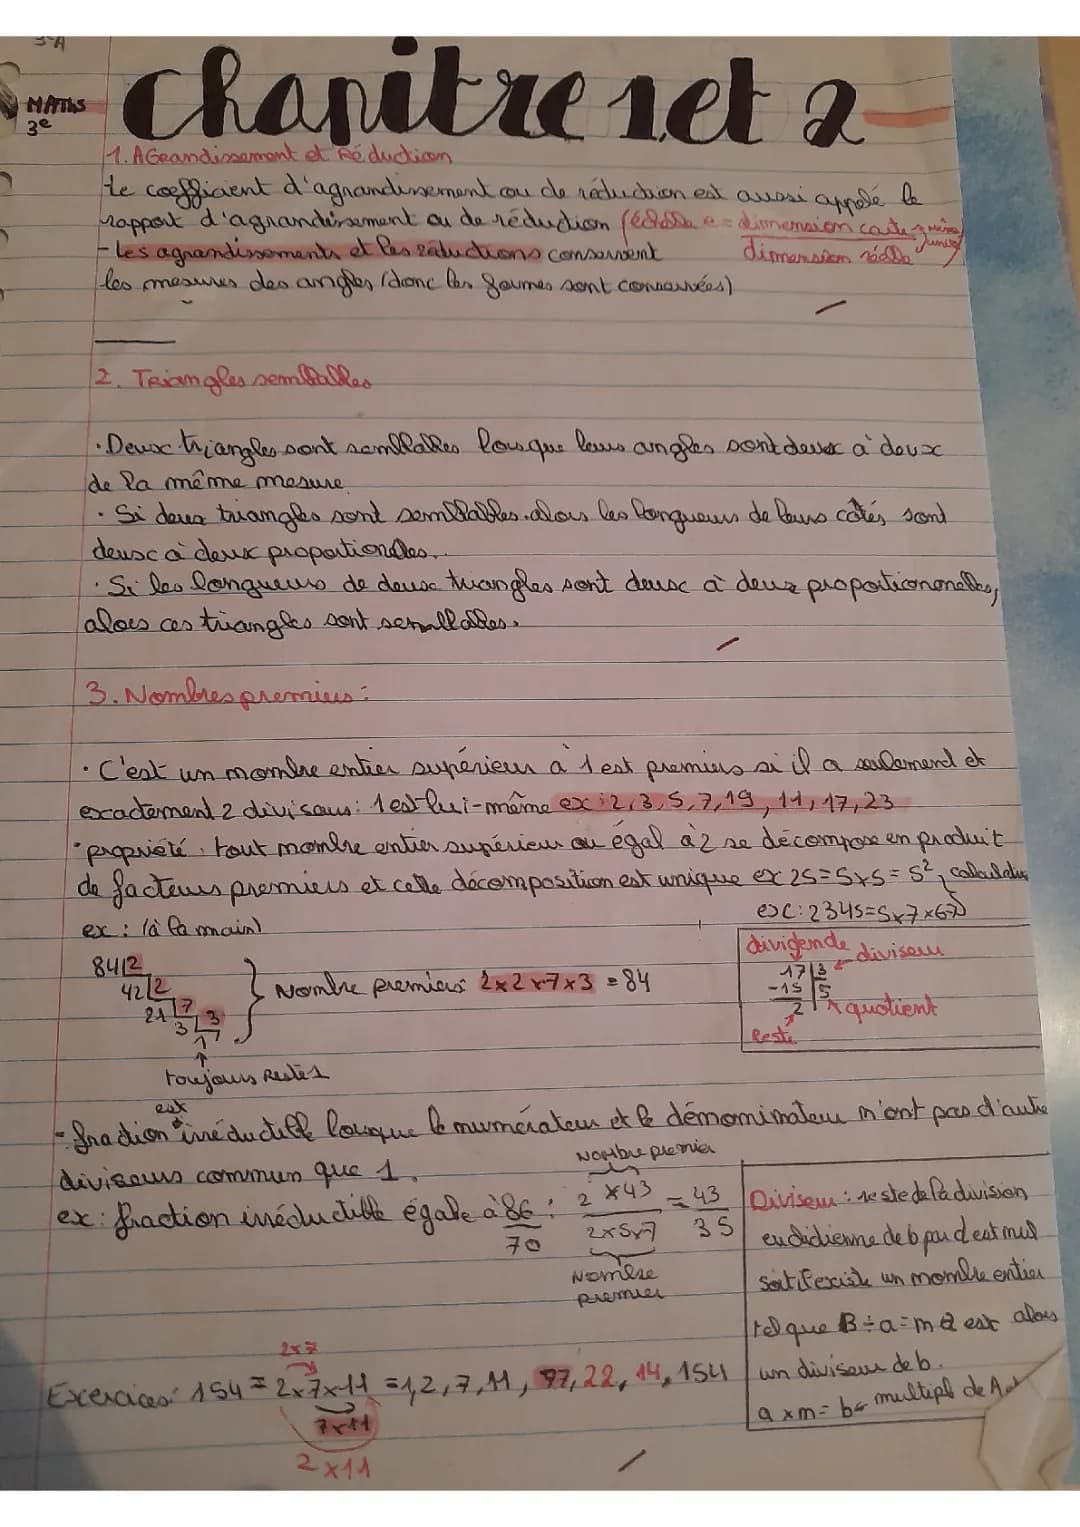 3-A
MATHS
3e
Chapitre 1 et 2
1. AGrandissement et Réduction
Le coefficient d'agrandissement ou de réduction est aussi appelé le
rapport d'agrandissement ou de réduction (échelle e = dimension carte / dimension réelle
- les agrandissements et les réductions conservent
les mesures des angles (donc les formes sont conservées)
2. Triangles semblables
· Deux triangles sont semblables lorsque leurs angles sont deux à deux
de la même mesure
· Si deux triangles sont semblables alors les longueurs de leurs côtés sont
deux à deux proportionnelles.
· Si les longueurs de deux triangles sont deux à deux proportionnelles,
alors ces triangles sont semblables.
3. Nombres premiers :
· C'est un nombre entier supérieur à 1 est premiers si il a seulement et
exactement 2 diviseurs : 1 est lui-même ex : 2, 3, 5, 7, 19, 11, 17, 23
· propriété : tout nombre entier supérieur ou égal à 2 se décompose en produit
de facteurs premiers et cette décomposition est unique ex 25=5x5=5²,
ex : 2345=5x7x67
ex : (à la main)
84|2
42|2
21|7
3|3
1
Nombre premiers 2x2x7x3 = 84
toujours Reste 1
dividende
diviseur
17|3
-15|5
2
quotient
Reste
- fraction est irréductible lorsque le numérateur et le dénominateur n'ont pas d'autre
diviseurs commun que 1.
Nombre premier
ex : fraction irréductible égale à 86/70 : 2x43 / 2x5x7 = 43/35
Nombre
premier
Diviseur : reste de la division
euclidienne de b par d est nul
soit il existe un nombre entier
tel que B÷a=m a est alors
un diviseur de b.
a x m = b multipl de A
2x7
Exercices : 154 = 2x7x11 = 1, 2, 7, 11, 77, 22, 14, 154
7x11
2x11